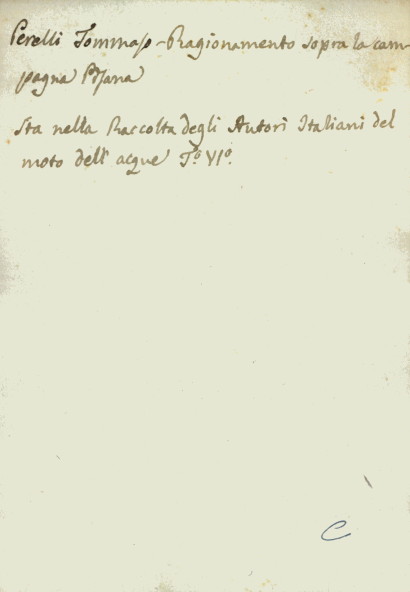 Perelli Tommaso - Ragionamento sopra la cam-
pagna Pisana
Sta nella Raccolta degli Autori Italiani del
moto dell' acque T.o VI.o
C